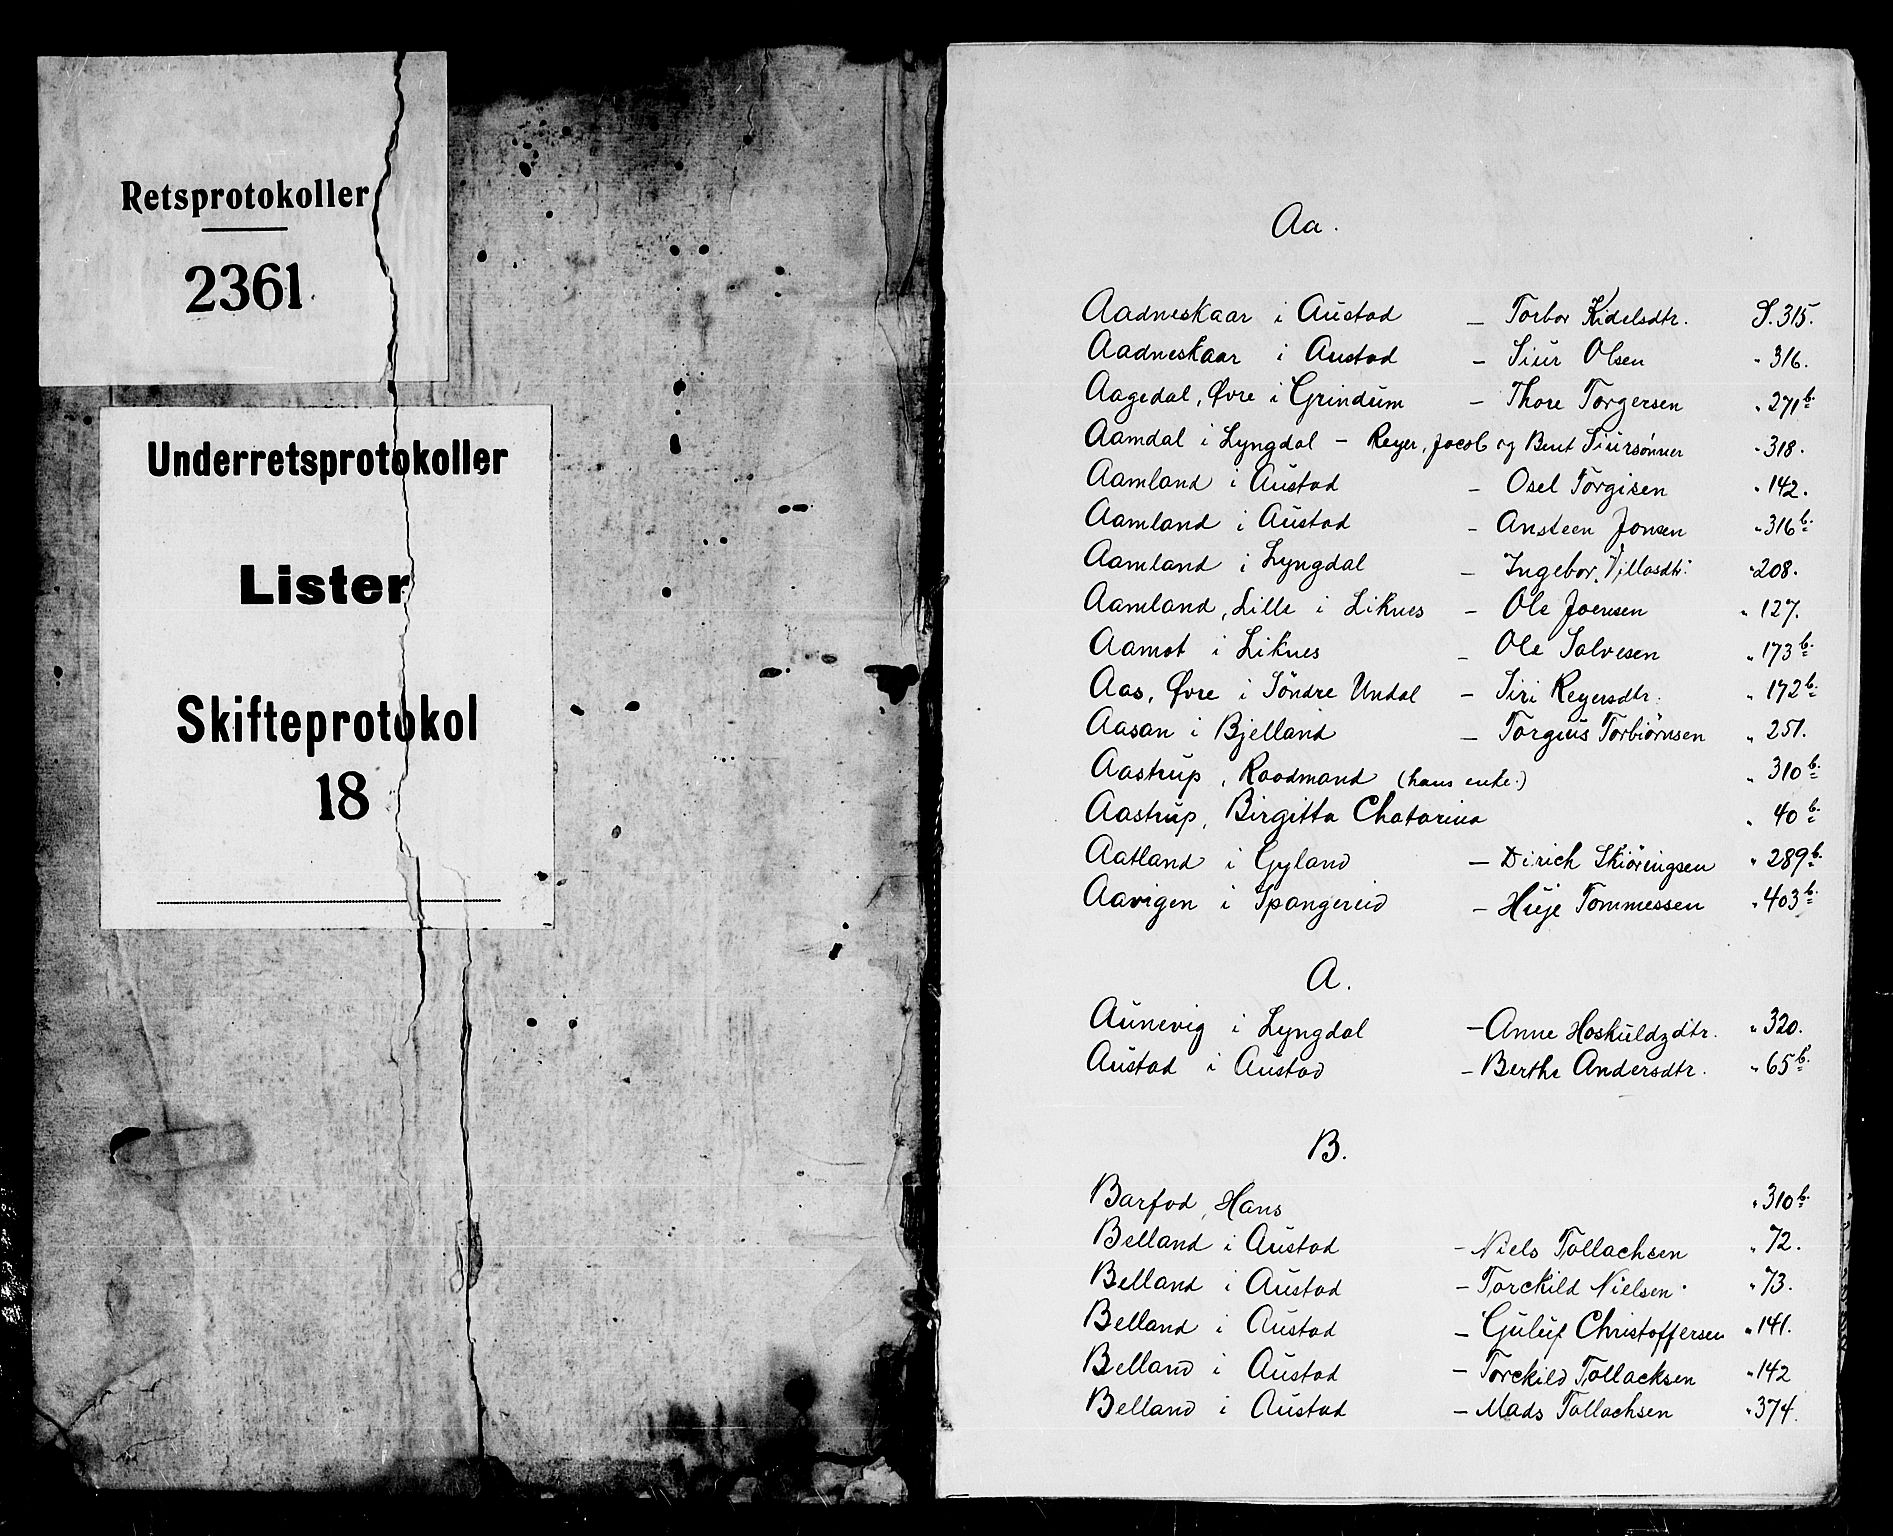 Retsprotokoller
2361
Underretsprotokoller
Lister
Skifteprotokol
18
Aa.
Aadneskaar i Austad — Torbor Kidelsdtr. S. 315.
Aadneskaar i Austad — Siur Olsen " 316.
Aagedal, Øvre i Grindum — Thore Torgersen " 271b.
Aamdal i Lyngdal — Reyer, Jacob og Bent Siursønner " 318.
Aamland i Austad — Osel Torgisen " 142.
Aamland i Austad — Ansteen Jonsen " 316b.
Aamland i Lyngdal — Ingebor Villasdtr. " 208.
Aamland, Lille i Liknes — Ole Joensen " 127.
Aamot i Liknes — Ole Salvesen " 173b.
Aas, Øvre i Söndre Undal — Siri Reyersdtr. " 172b.
Aasan i Bjelland — Torgius Torbiørnsen " 251.
Aastrup, Raadmand (hans enke.) " 310b.
Aastrup, Birgitta Chatarina " 40b.
Aatland i Gyland — Dirich Skiöringsen " 289b.
Aavigen i Spangereid — Huje Tommessen " 403b.
A.
Aunevig i Lyngdal — Anne Hoskuldzdtr. " 320.
Austad i Austad — Berthe Andersdtr. " 65b.
B.
Barfod, Hans " 310b.
Belland i Austad — Niels Tollachsen " 72.
Belland i Austad — Torckild Nielsen. " 73.
Belland i Austad — Guluf Christoffersen " 141.
Belland i Austad — Torckild Tollacksen " 142
Belland i Austad — Mads Tollachsen " 374.